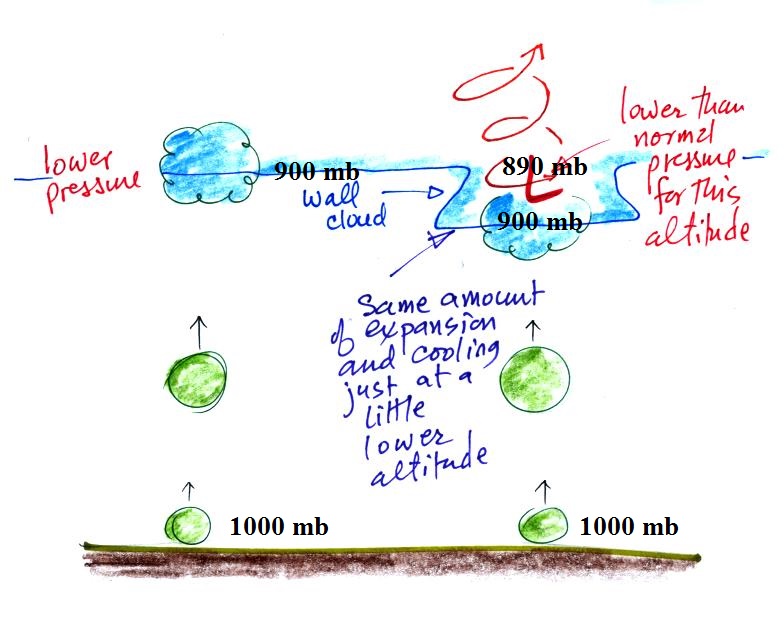 lower
pressure
900 mb
wall
cloud
890 mb
L
900 mb
lower than
normal
pressure
for this
altitude
Same amount
of expansion
and cooling
just at a
little
lower
altitude
1000 mb
1000 mb